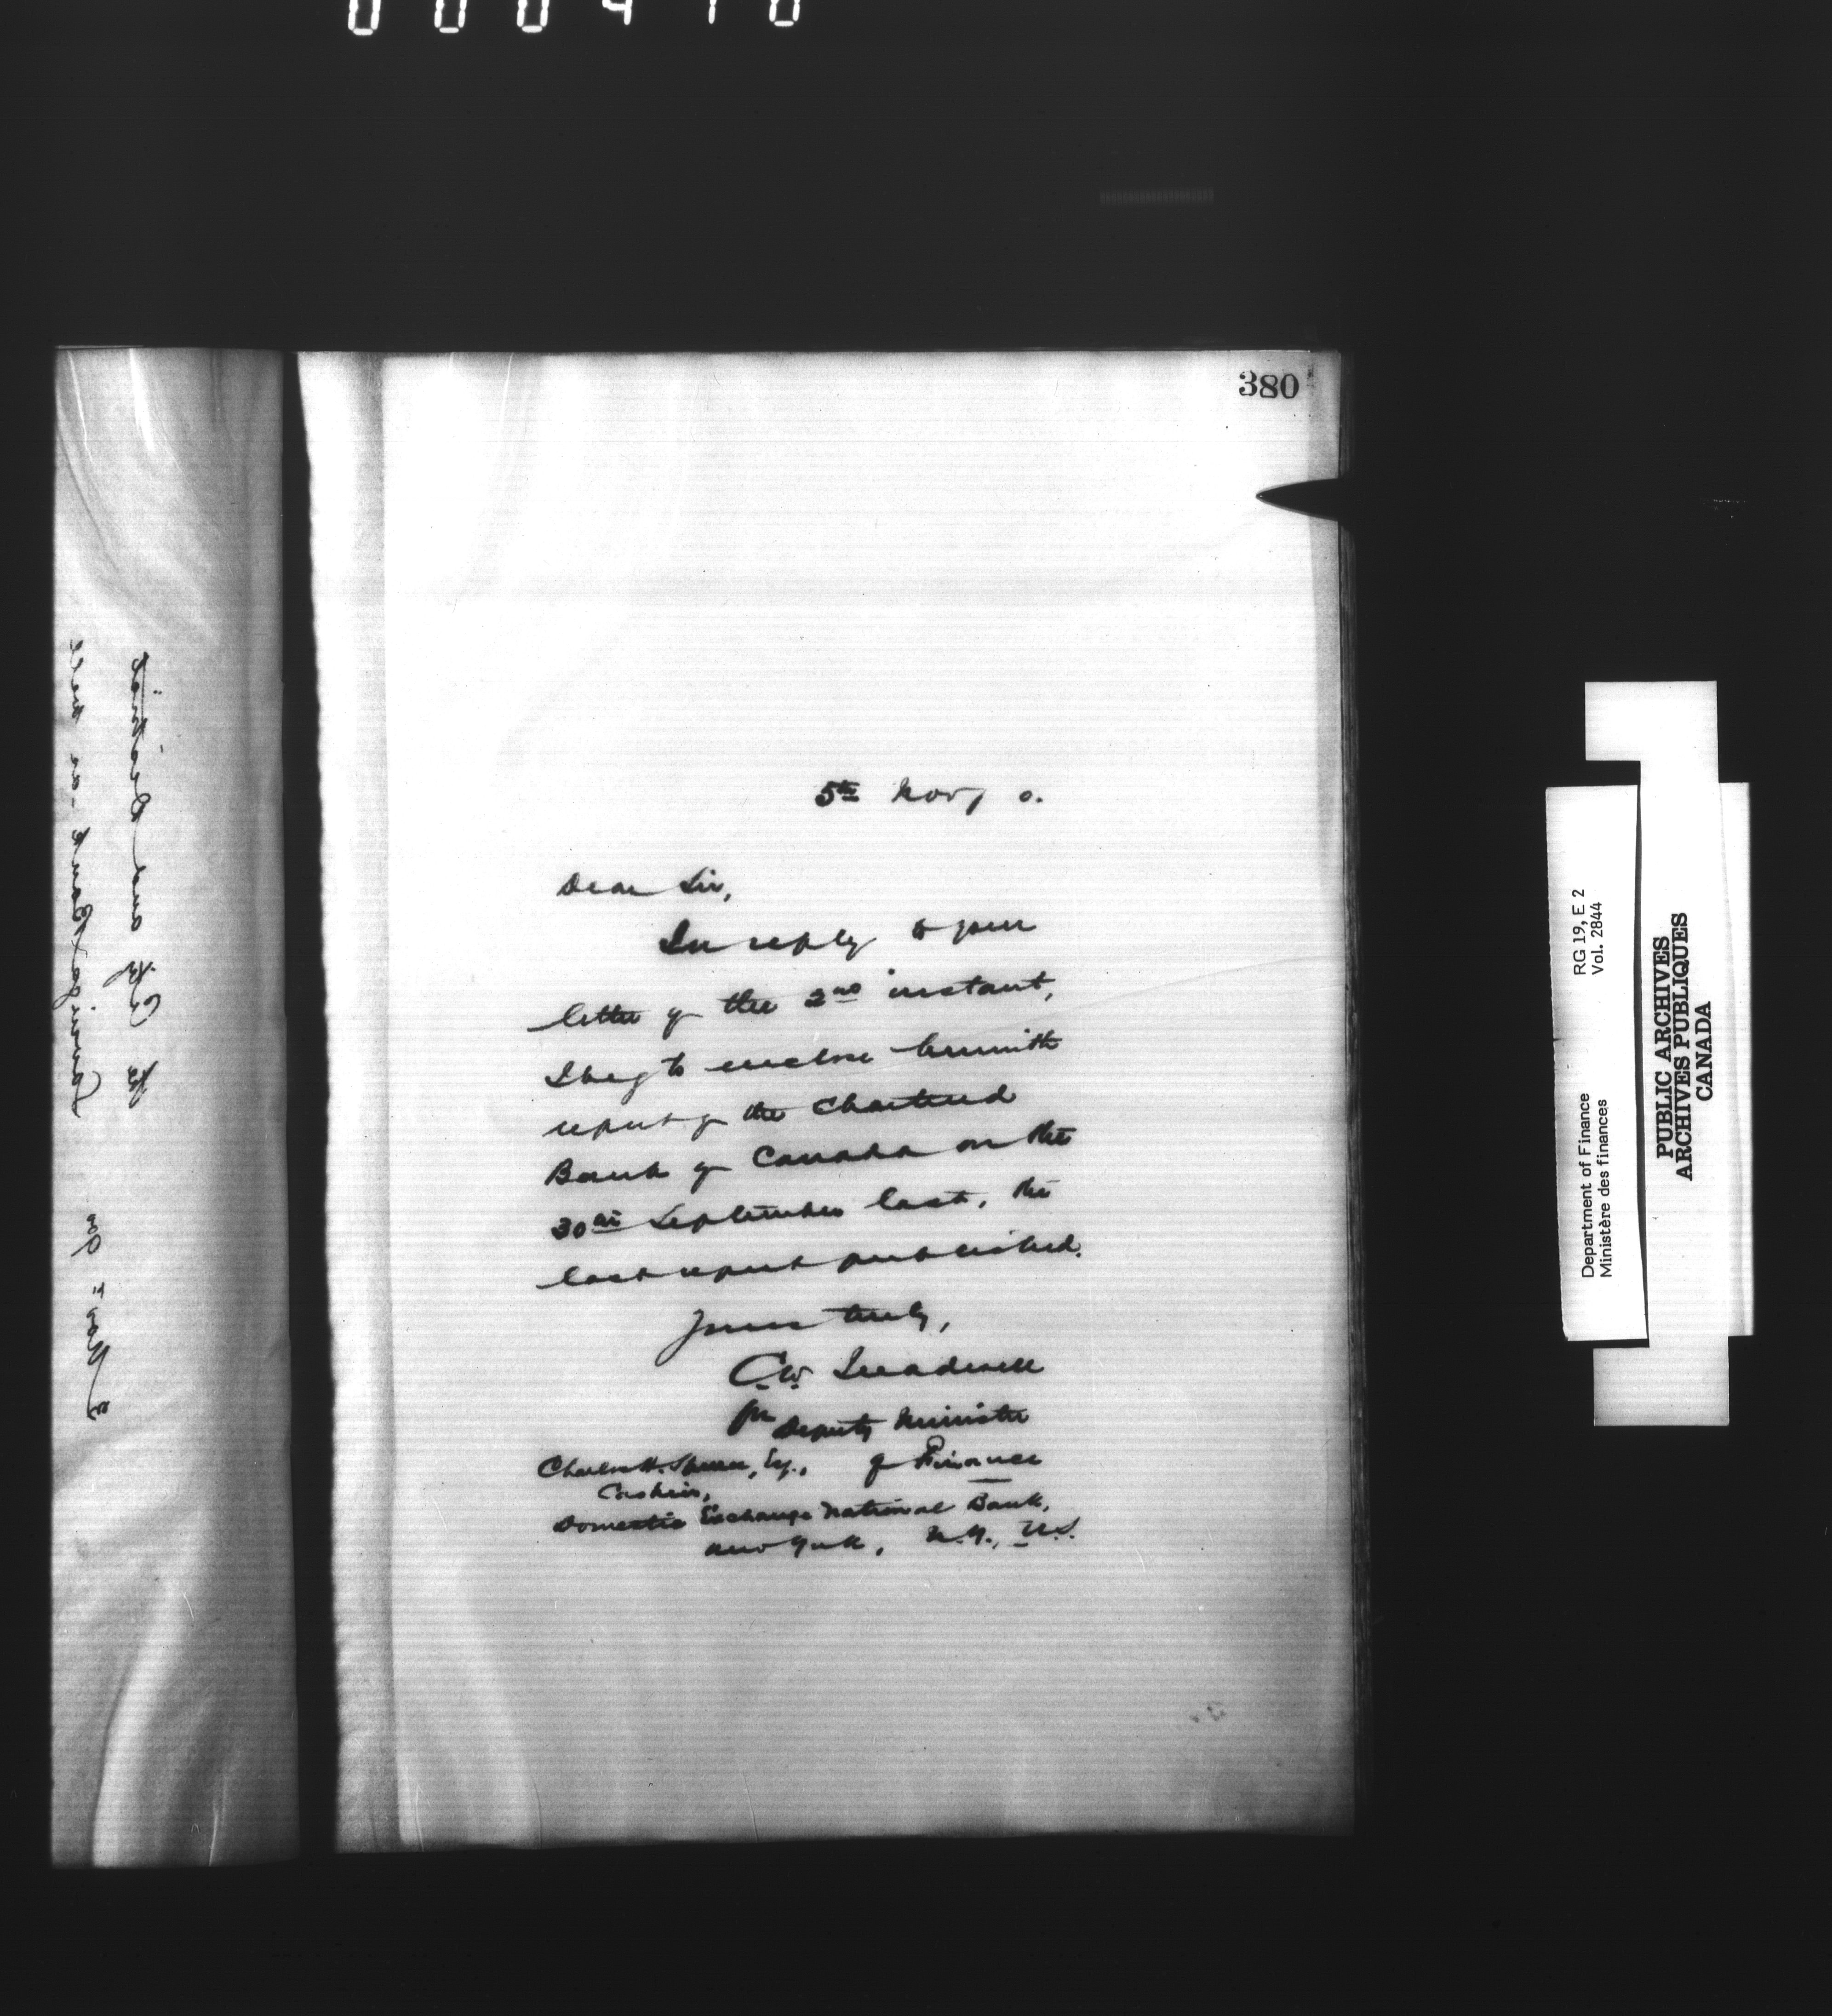 380
5th Nov, 0.
Dear Sir,
In reply to your
letter of the 2nd instant,
I beg to enclose herewith
report of the Chartered
Bank of Canada on the
30th September last, the
last report published.
Yours truly,
C.W. Treadwell
for Deputy Minister
of Finance
Charles H. Esq.,
Cashier,
Domestic Exchange National Bank,
New York, N.Y., U.S.
Department of Finance RG 19, E 2
Ministère des finances Vol. 2844
PUBLIC ARCHIVES
ARCHIVES PUBLIQUES
CANADA